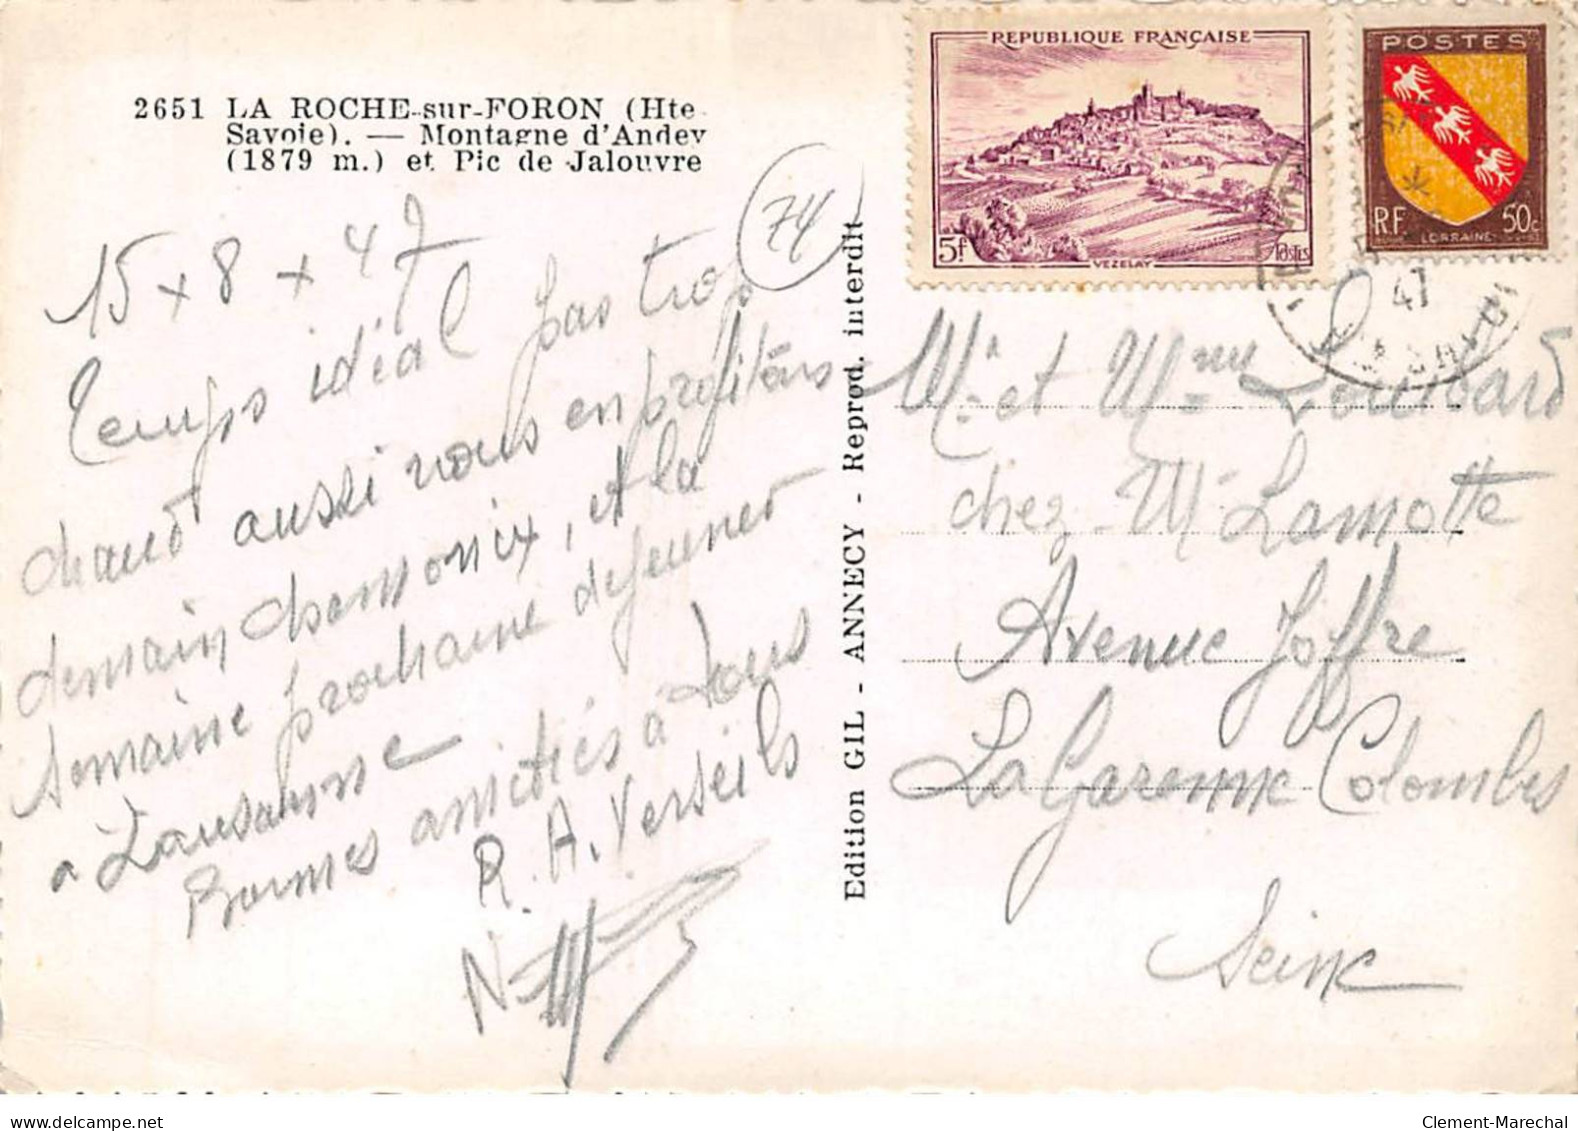 2651 LA ROCHE-sur-FORON (Hte-
Savoie). — Montagne d'Andey
(1879 m.) et Pic de Jalouvre
74
15 x 8 x 47
Temps idéal pas trop
chaud aussi nous en profitons
demain chammonix, et la
semaine prochaine dejeuner
a Lausanne
Bonnes amitiés à tous
R. A. Verseils
Edition GIL - ANNECY - Reprod. interdit
REPUBLIQUE FRANÇAISE
5f
VEZELAY
POSTES
POSTES
R.F.
50c
LORRAINE
47
Mr et Mme Loubard
chez Mr Lamotte
Avenue Joffre
La Garenne Colombes
Seine
Clement-Marechal